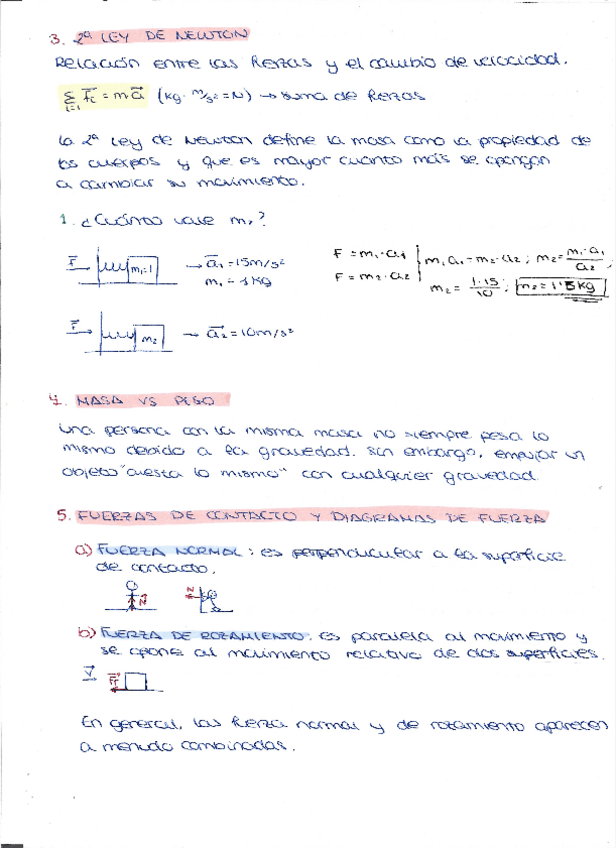 3. 2ª LEY DE NEWTON
Relación entre las fuerzas y el cambio de velocidad.
Σ i=1 F⃗i = m a⃗ (kg · m/s² = N) → suma de fuerzas
La 2ª Ley de Newton define la masa como la propiedad de
los cuerpos y que es mayor cuanto más se opongan
a cambiar su movimiento.
1. ¿Cuánto vale m₂?
F⃗ m₁=1 → a⃗₁ = 15m/s²
m₁ = 1 kg
F = m₁·a₁
F = m₂·a₂
m₁a₁ = m₂·a₂ ; m₂ = m₁·a₁/a₂
m₂ = 1·15/10 ; m₂ = 1'5 kg
F⃗ m₂ → a⃗₂ = 10m/s²
4. MASA VS PESO
Una persona con la misma masa no siempre pesa lo
mismo debido a la gravedad. Sin embargo, empujar un
objeto "cuesta lo mismo" con cualquier gravedad.
5. FUERZAS DE CONTACTO Y DIAGRAMAS DE FUERZA
a) FUERZA NORMAL: es perpendicular a la superficie
de contacto.
N N
b) FUERZA DE ROZAMIENTO: es paralela al movimiento y
se opone al movimiento relativo de dos superficies.
v⃗
En general, las fuerza normal y de rozamiento aparecen
a menudo combinadas.